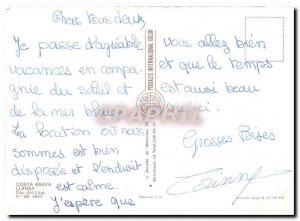 Chers tous deux,
Je passe d'agréable
vacances en compa-
gnie du soleil et
de la mer bleue.
La location où nous
sommes est bien
disposée et l'endroit
est calme.
J'espère que
vous allez bien
et que le temps
est aussi beau
qu'ici.
Grosses Bises
COSTA BRAVA
LLANSA
POSTALES INTERNACIONAL COLOR